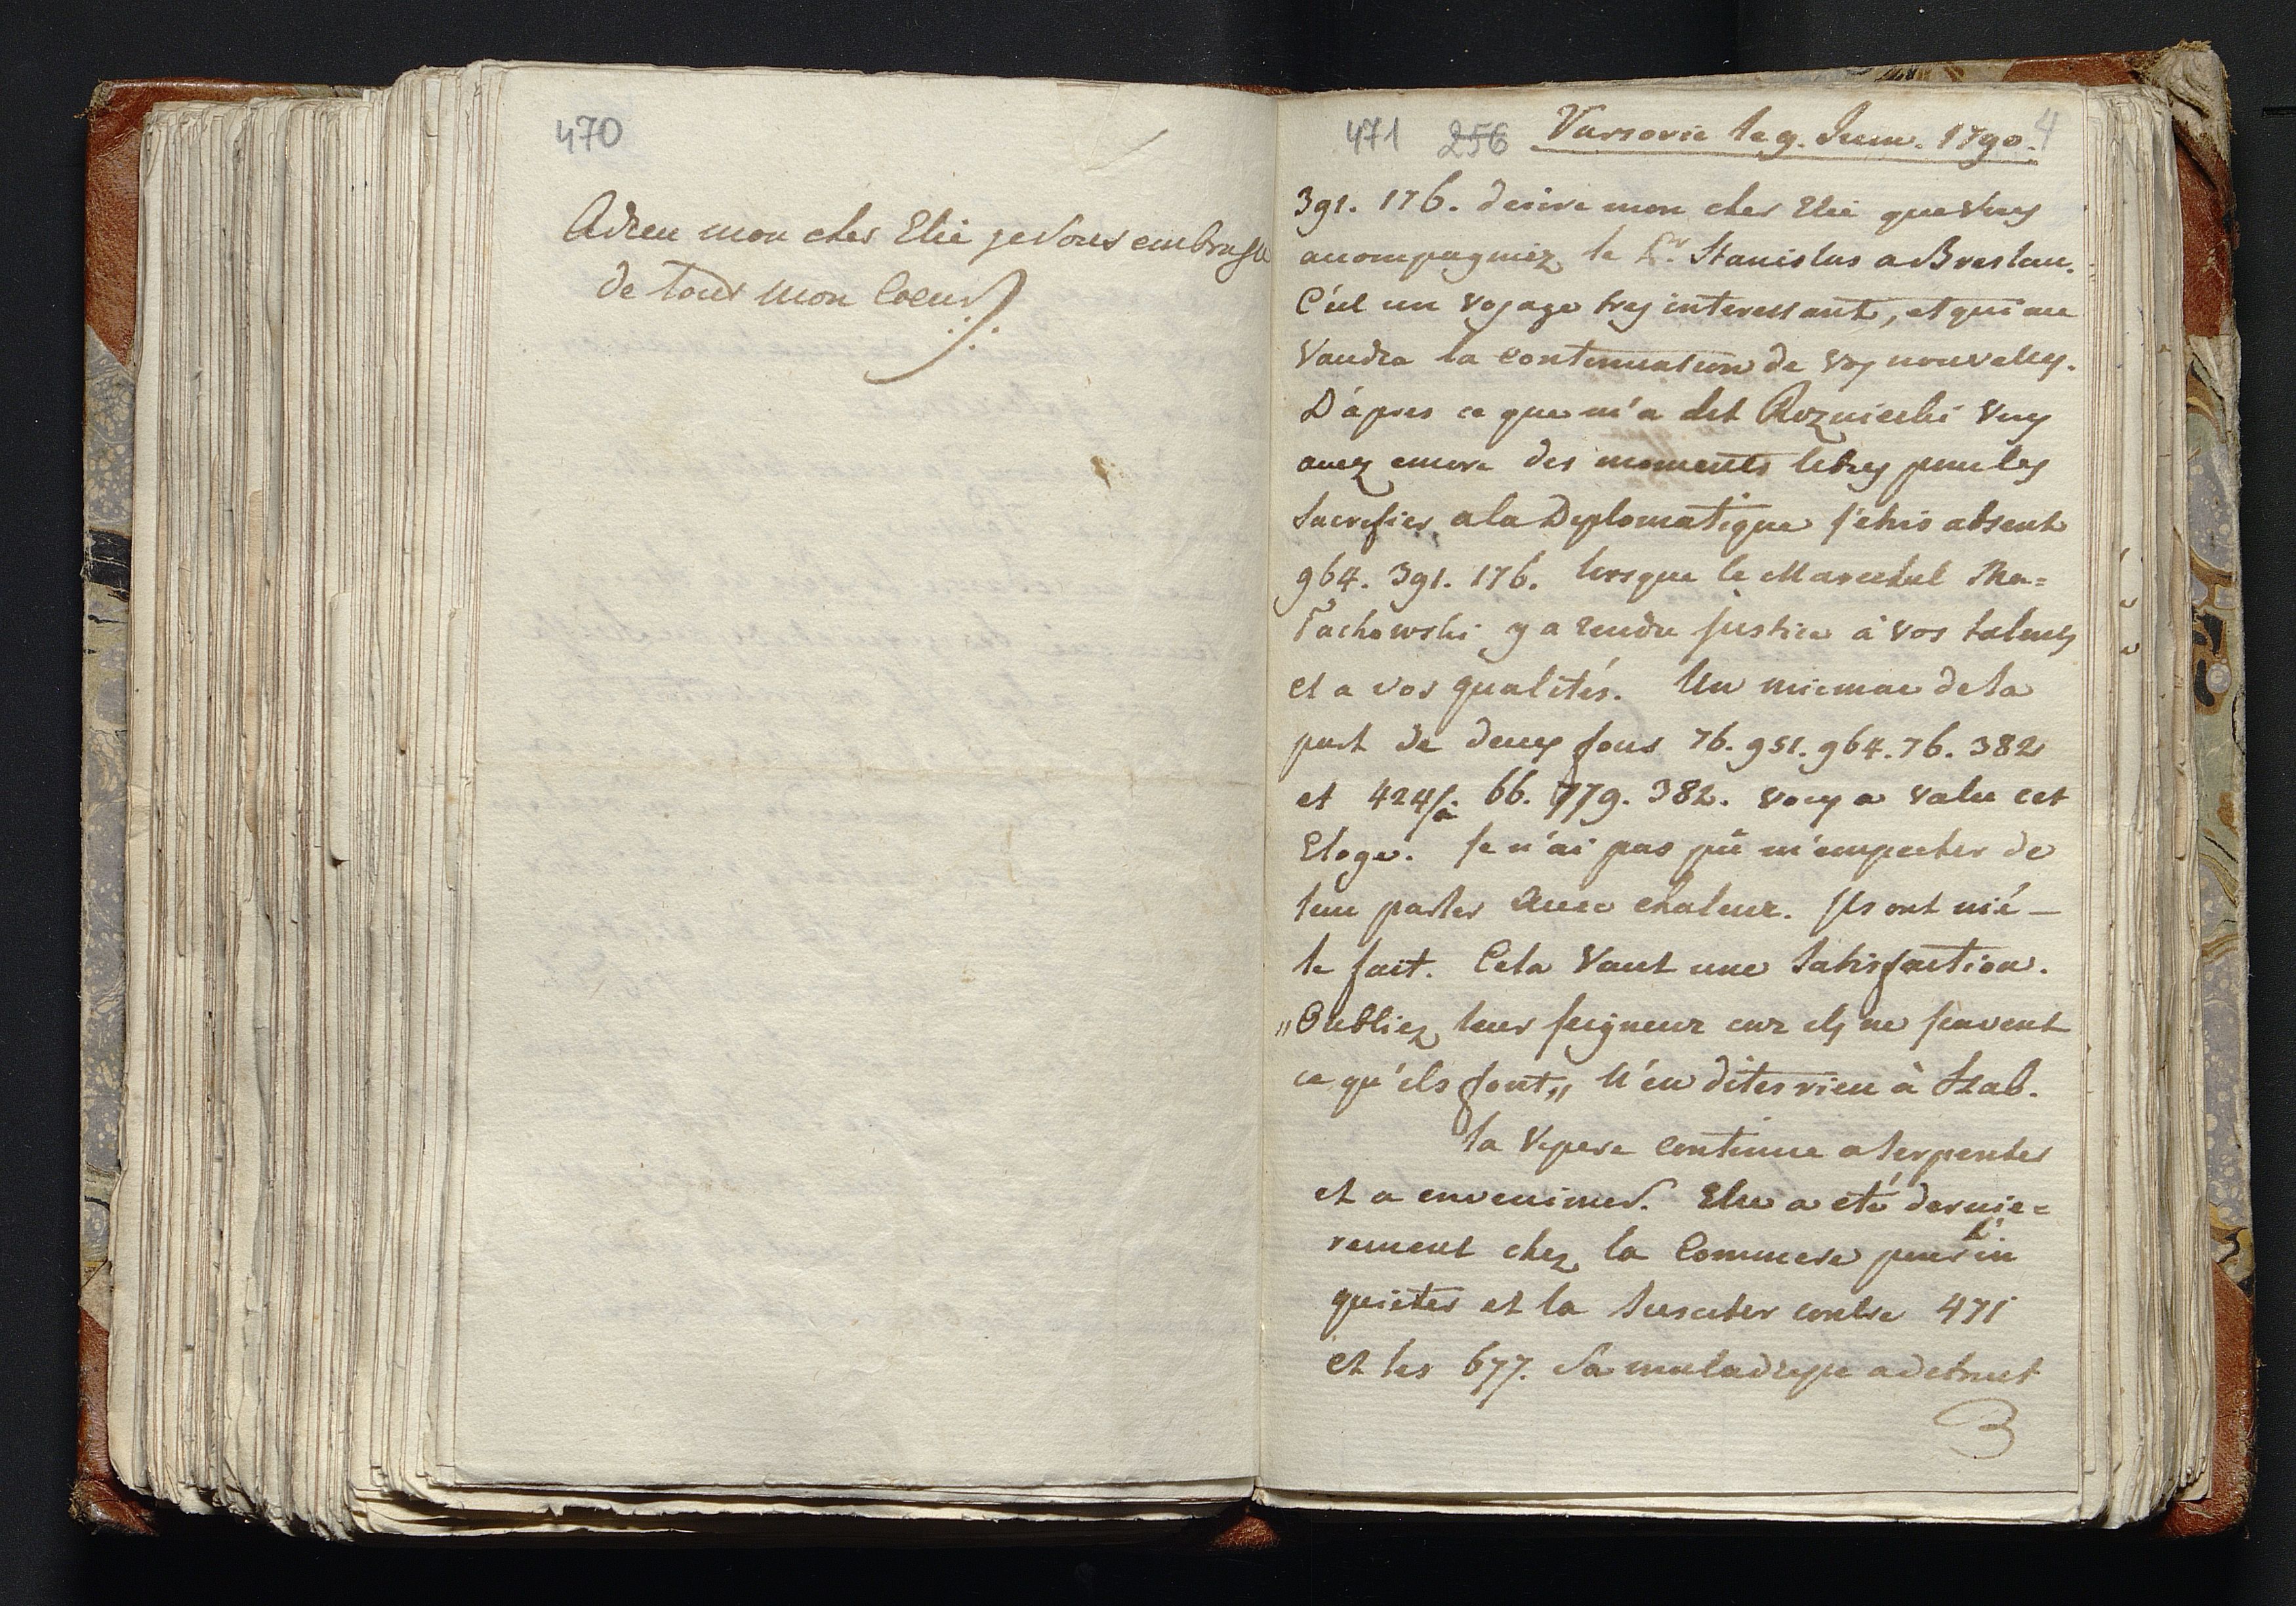 470
Adieu mon cher Elie je Vous embrasse
de tout mon Coeur
471 256 Varsovie le 9. Juin. 1790. 4
391. 176. desire mon cher Elie que vous
accompagniez le Pr. Stanislas a Breslau.
C'est un voyage tres interessant, et qui me
Vaudra la continuation de vos nouvelles.
D'apres ce que m'a dit Rozniecki vous
avez encore des moments libres pour les
sacrifier a la Diplomatique j'etois absent
964. 391. 176. lorsque le Marechal Ma=
Tachowski y a rendu justice à vos talents
et a vos qualités. Un micmac de la
part de deux fous 76. 951. 964. 76. 382
et 424/a 66. 779. 382. vous a valu cet
Eloge. Je n'ai pas pû m'empecher de
leur parler avec chaleur. Ils ont nié —
le fait. Cela Vaut une satisfaction.
„Oubliez leur seigneur car ils ne savent
ce qu'ils font„ N'en dites rien à Szab.
la Vipere continue a serpenter
et a envenimer. Elle a été dernie=
rement chez la Commere pour l'in
quieter et la susciter contre 471
et les 677. Sa maladresse a detruit
3